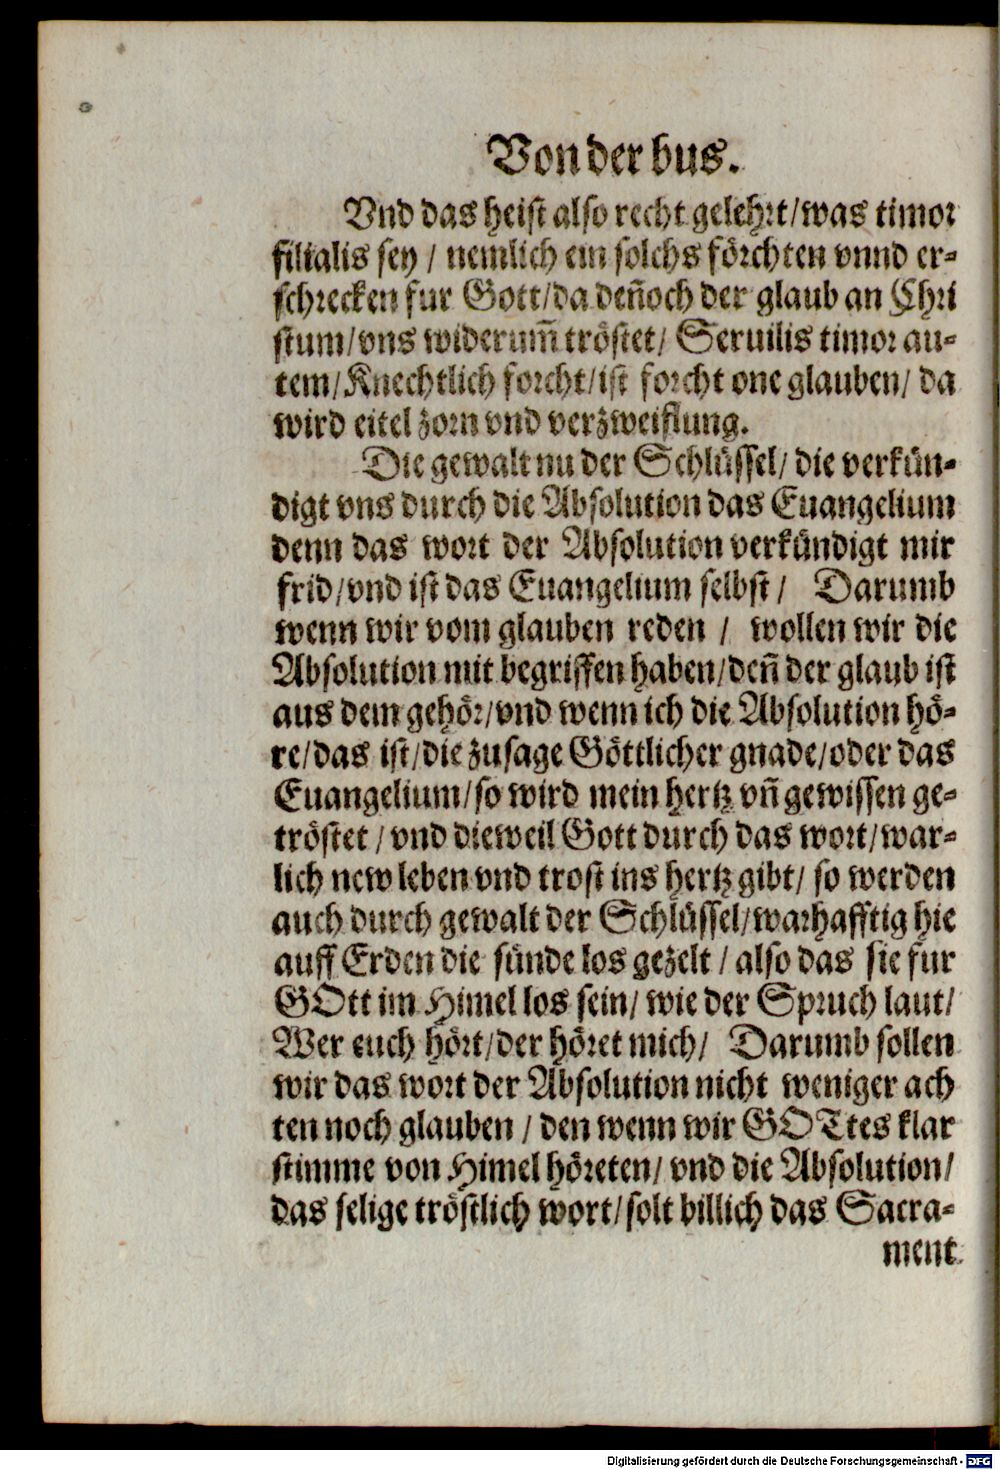 Von der bus.
Vnd das heist also recht gelehrt/was timor
filialis sey / nemlich ein solchs förchten vnnd er-
schrecken fur Gott/da deñoch der glaub an Chri
stum/vns widerum̃ tröstet/ Seruilis timor au-
tem/Knechtlich forcht/ist forcht one glauben/ da
wird eitel zorn vnd verzweiflung.
Die gewalt nu der Schlüssel/ die verkün-
digt vns durch die Absolution das Euangelium
denn das wort der Absolution verkündigt mir
frid/vnd ist das Euangelium selbst / Darumb
wenn wir vom glauben reden / wollen wir die
Absolution mit begriffen haben/deñ der glaub ist
aus dem gehör/vnd wenn ich die Absolution hö-
re/das ist/die zusage Göttlicher gnade/oder das
Euangelium/so wird mein hertz vñ gewissen ge-
tröstet / vnd dieweil Gott durch das wort/war-
lich new leben vnd trost ins hertz gibt/ so werden
auch durch gewalt der Schlüssel/warhafftig hie
auff Erden die sünde los gezelt / also das sie fur
GOtt im Himel los sein/ wie der Spruch laut/
Wer euch hört/der höret mich/ Darumb sollen
wir das wort der Absolution nicht weniger ach
ten noch glauben / den wenn wir GOTtes klar
stimme von Himel höreten/ vnd die Absolution/
das selige tröstlich wort/solt billich das Sacra-
ment
Digitalisierung gefördert durch die Deutsche Forschungsgemeinschaft - DFG